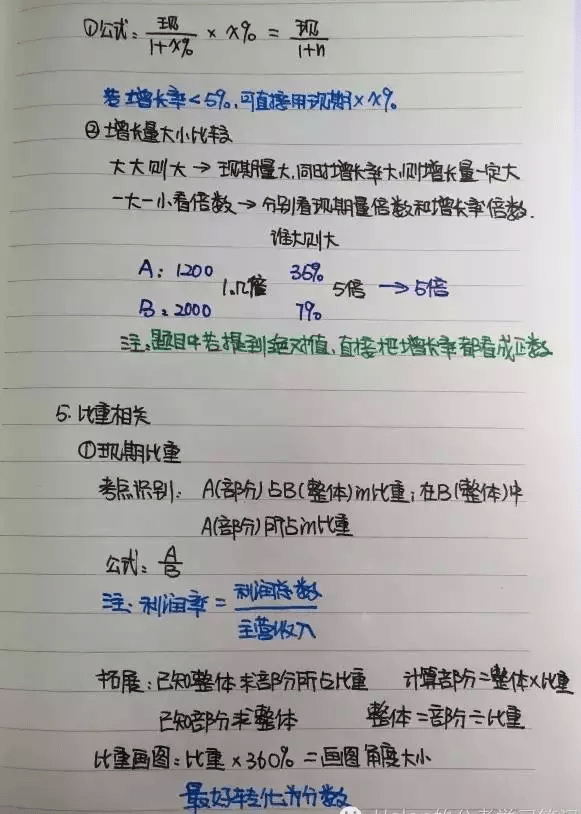 ①公式: 现/(1+x%) × x% = 现/(1+n)
若增长率<5%,可直接用现期×x%
②增长量大小比较
大大则大→现期量大,同时增长率大,则增长量一定大
一大一小看倍数→分别看现期量倍数和增长率倍数.
谁大则大
A: 1200 1.几倍 35% 5倍 →5倍
B: 2000 7%
注:题目中若提到绝对值,直接把增长率都看成正数
5. 比重相关
①现期比重
考点识别: A(部分)占B(整体)m比重;在B(整体)中
A(部分)所占m比重
公式: A/B
注: 利润率=利润总数/主营收入
拓展:已知整体求部分所占比重 计算部分=整体×比重
已知部分求整体 整体=部分÷比重
比重画图:比重×360%=画图角度大小
最好转化为分数